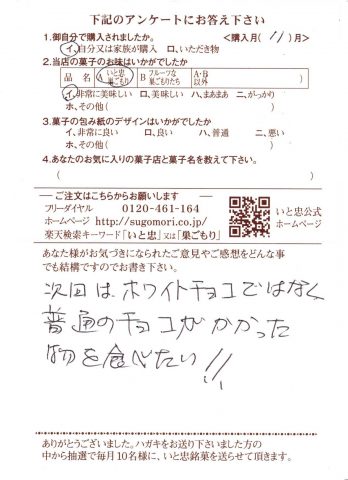 下記のアンケートにお答え下さい
1.御自分で購入されましたか。 <購入月( 11 )月>
イ.自分又は家族が購入 ロ.いただき物
2.当店の菓子のお味はいかがでしたか
品 名 A いと忠 巣ごもり B フルーツな 菓ごもりたち A・B 以外
イ.非常に美味しい ロ.美味しい ハ.まあまあ ニ.がっかり
ホ.その他( )
3.菓子の包み紙のデザインはいかがでしたか
イ.非常に良い ロ.良い ハ.普通 ニ.悪い
ホ.その他( )
4.あなたのお気に入りの菓子店と菓子名を教えて下さい。
( )
― ご注文はこちらからお願いします ―
フリーダイヤル 0120-461-164
ホームページ http://sugomori.co.jp/
楽天検索キーワード「いと忠」又は「巣ごもり」
いと忠公式
ホームページ
あなた様がお気づきになられたご意見やご感想をどんな事
でも結構ですのでお書き下さい。
次回はホワイトチョコではなく
普通のチョコがかかった
物を食べたい!!
ありがとうございました。ハガキをお送り下さいました方の
中から抽選で毎月10名様に、いと忠銘菓を送らせて頂きます。